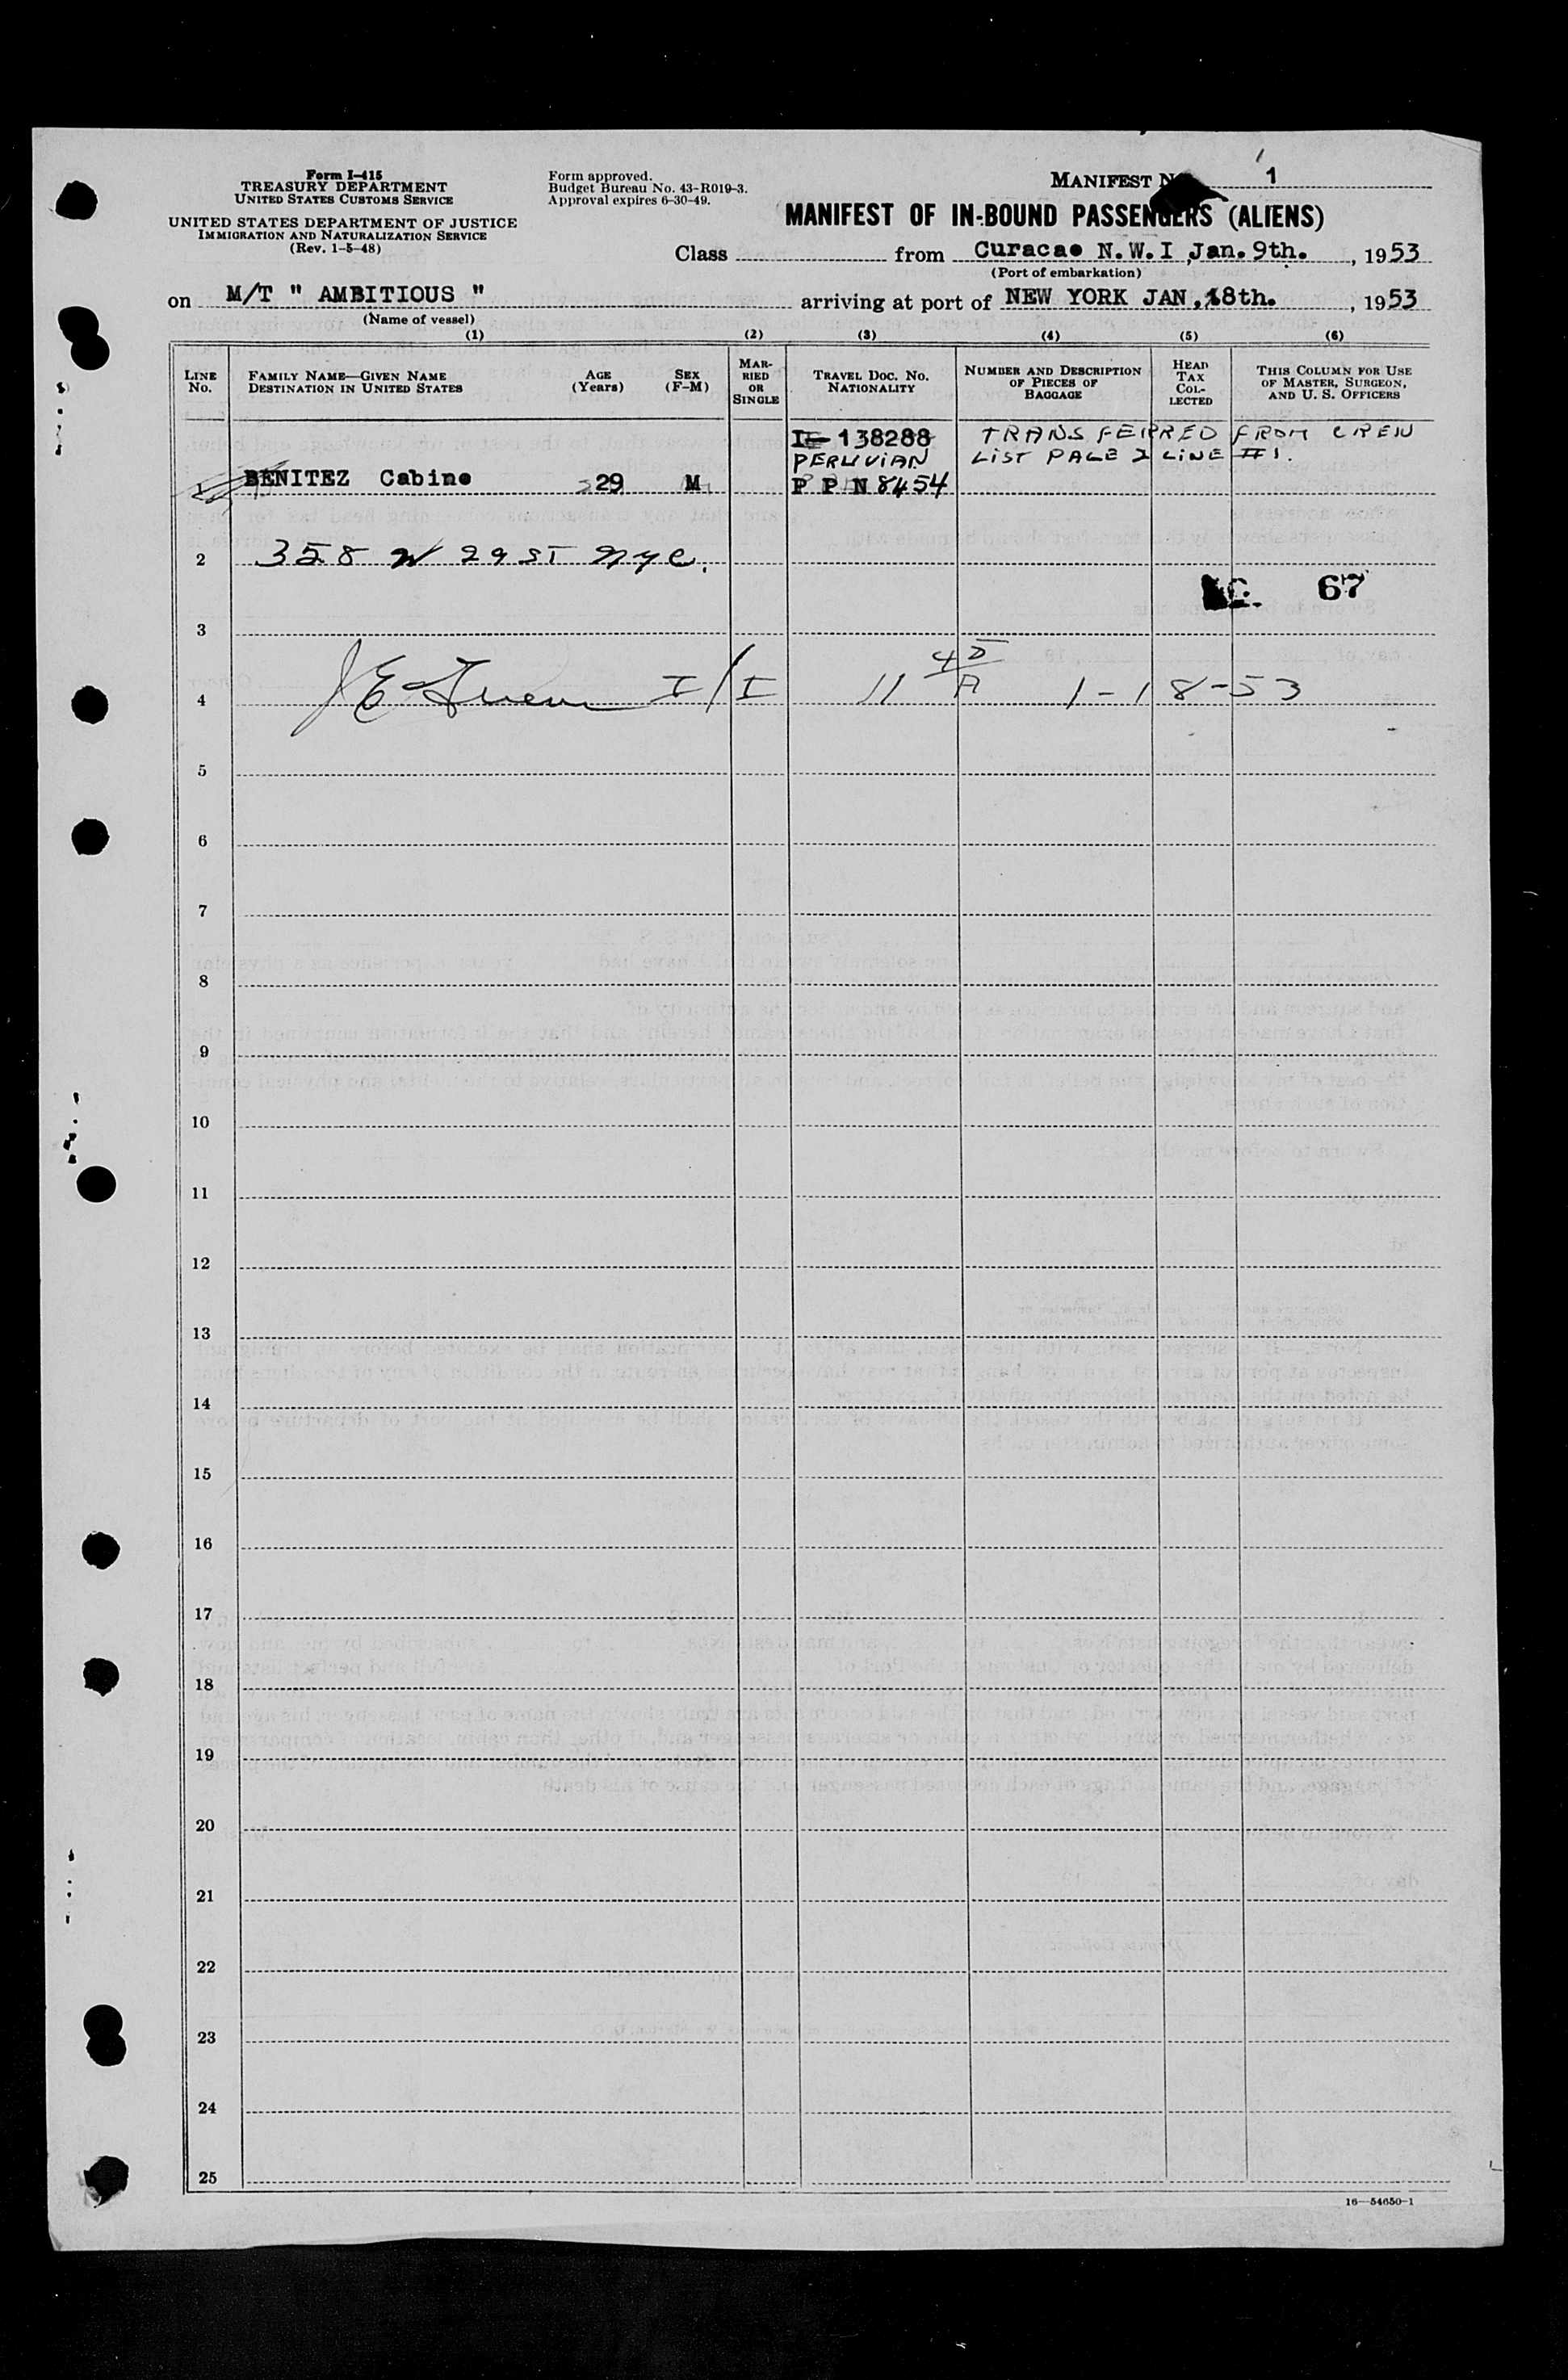 Form I-415
TREASURY DEPARTMENT
UNITED STATES CUSTOMS SERVICE
UNITED STATES DEPARTMENT OF JUSTICE
IMMIGRATION AND NATURALIZATION SERVICE
(Rev. 1-5-48)
Form approved.
Budget Bureau No. 43-R019-3.
Approval expires 6-30-49.
MANIFEST 1
MANIFEST OF IN-BOUND PASSENGERS (ALIENS)
Class from Curacao N.W.I, Jan. 9th., 1953
(Port of embarkation)
on M/T " AMBITIOUS " arriving at port of NEW YORK JAN, 18th., 1953
(Name of vessel)
(1) (2) (3) (4) (5) (6)
LINE No.
FAMILY NAME—GIVEN NAME
DESTINATION IN UNITED STATES
AGE (Years)
SEX (F-M)
MARRIED OR SINGLE
TRAVEL DOC. NO.
NATIONALITY
NUMBER AND DESCRIPTION OF PIECES OF BAGGAGE
HEAD TAX COLLECTED
THIS COLUMN FOR USE OF MASTER, SURGEON, AND U. S. OFFICERS
138288 TRANSFERRED FROM CREW
PERUVIAN LIST PAGE 2 LINE #1.
1 BENITEZ Cabino 29 M P P N 8454
2 358 W 29 ST NYC.
67
3
4 I/I 11 4D/A 1-18-53
5
6
7
8
9
10
11
12
13
14
15
16
17
18
19
20
21
22
23
24
25
16—54650-1